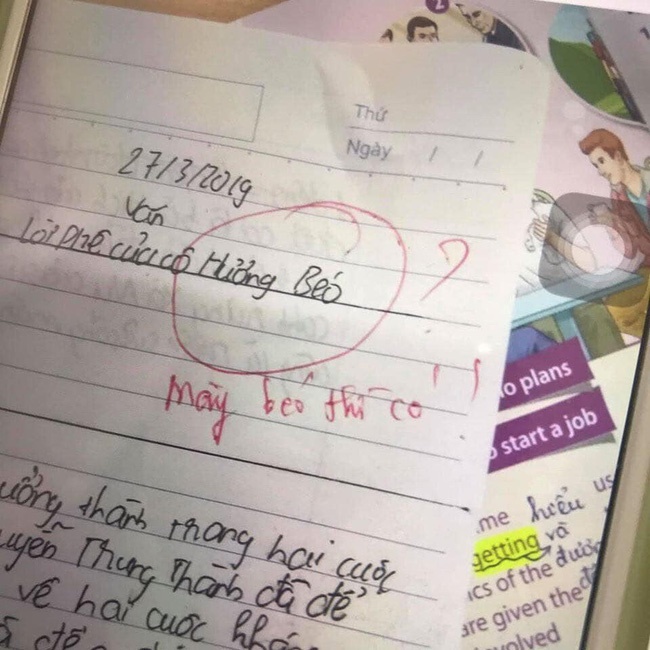 Thứ
Ngày / /
27/3/2019
Văn
Lời phê của cô Hưởng Béo
?
Mày béo thì có !!
ưởng thành trong hai cuộc
uyễn Trung Thành đã để
về hai cuộc khá
2
o plans
start a job
me hiểu us
getting và
ics of the được
are given the
volved